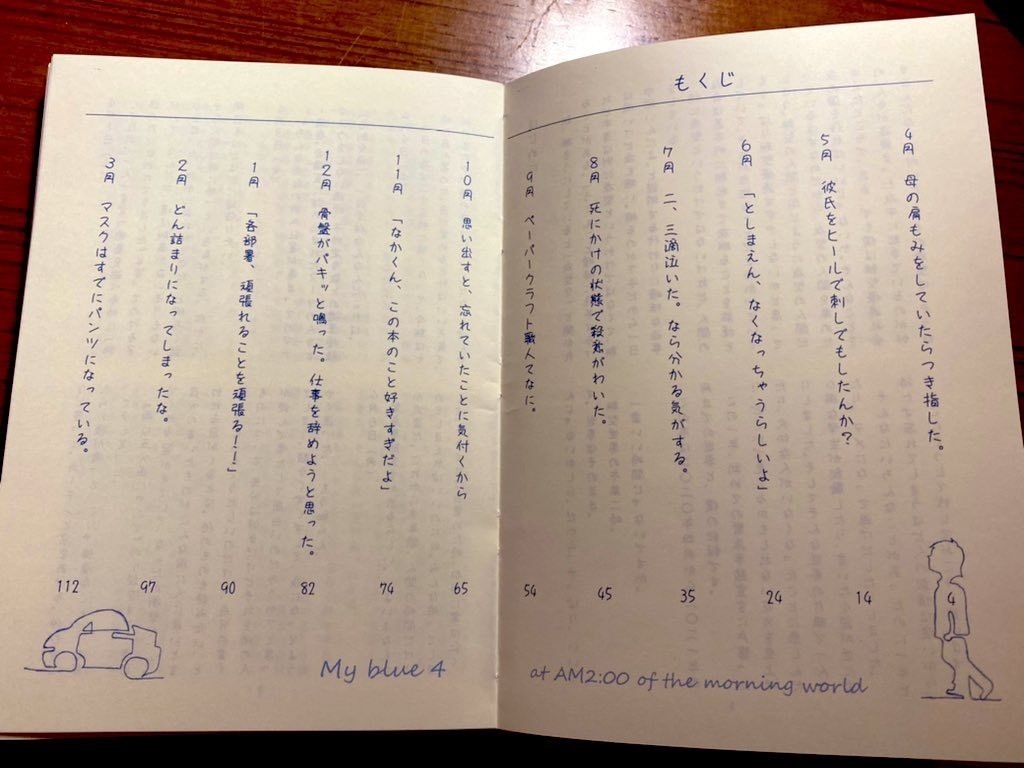 もくじ
4月　母の肩もみをしていたらつき指した。 4
5月　彼氏をヒールで刺しでもしたんか? 14
6月　「としまえん、なくなっちゃうらしいよ」 24
7月　二、三滴泣いた。なら分かる気がする。 35
8月　死にかけの状態で殺意がわいた。 45
9月　ペーパークラフト職人てなに。 54
10月　思い出すと、忘れていたことに気付くから 65
11月　「なかくん、この本のこと好きすぎだよ」 74
12月　骨盤がバキッと鳴った。仕事を辞めようと思った。 82
1月　「各部署、頑張れることを頑張る!!」 90
2月　どん詰まりになってしまったな。 97
3月　マスクはすでにパンツになっている。 112
My blue 4
at AM2:00 of the morning world